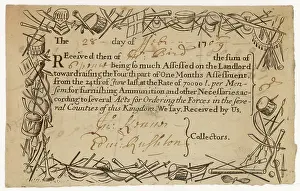 The 28 day of
REceived then of the sum of
being so much Assessed on the Landlord
toward raising the Fourth part of One Months Assessment,
from the 24th of June last, at the Rate of 70000 l. per Men-
sem for furnishing Ammunition and other Necessaries ac-
cording to several Acts for Ordering the Forces in the seve-
ral Counties of this Kingdom: We say, Received by Us,
Collectors.
Rushton